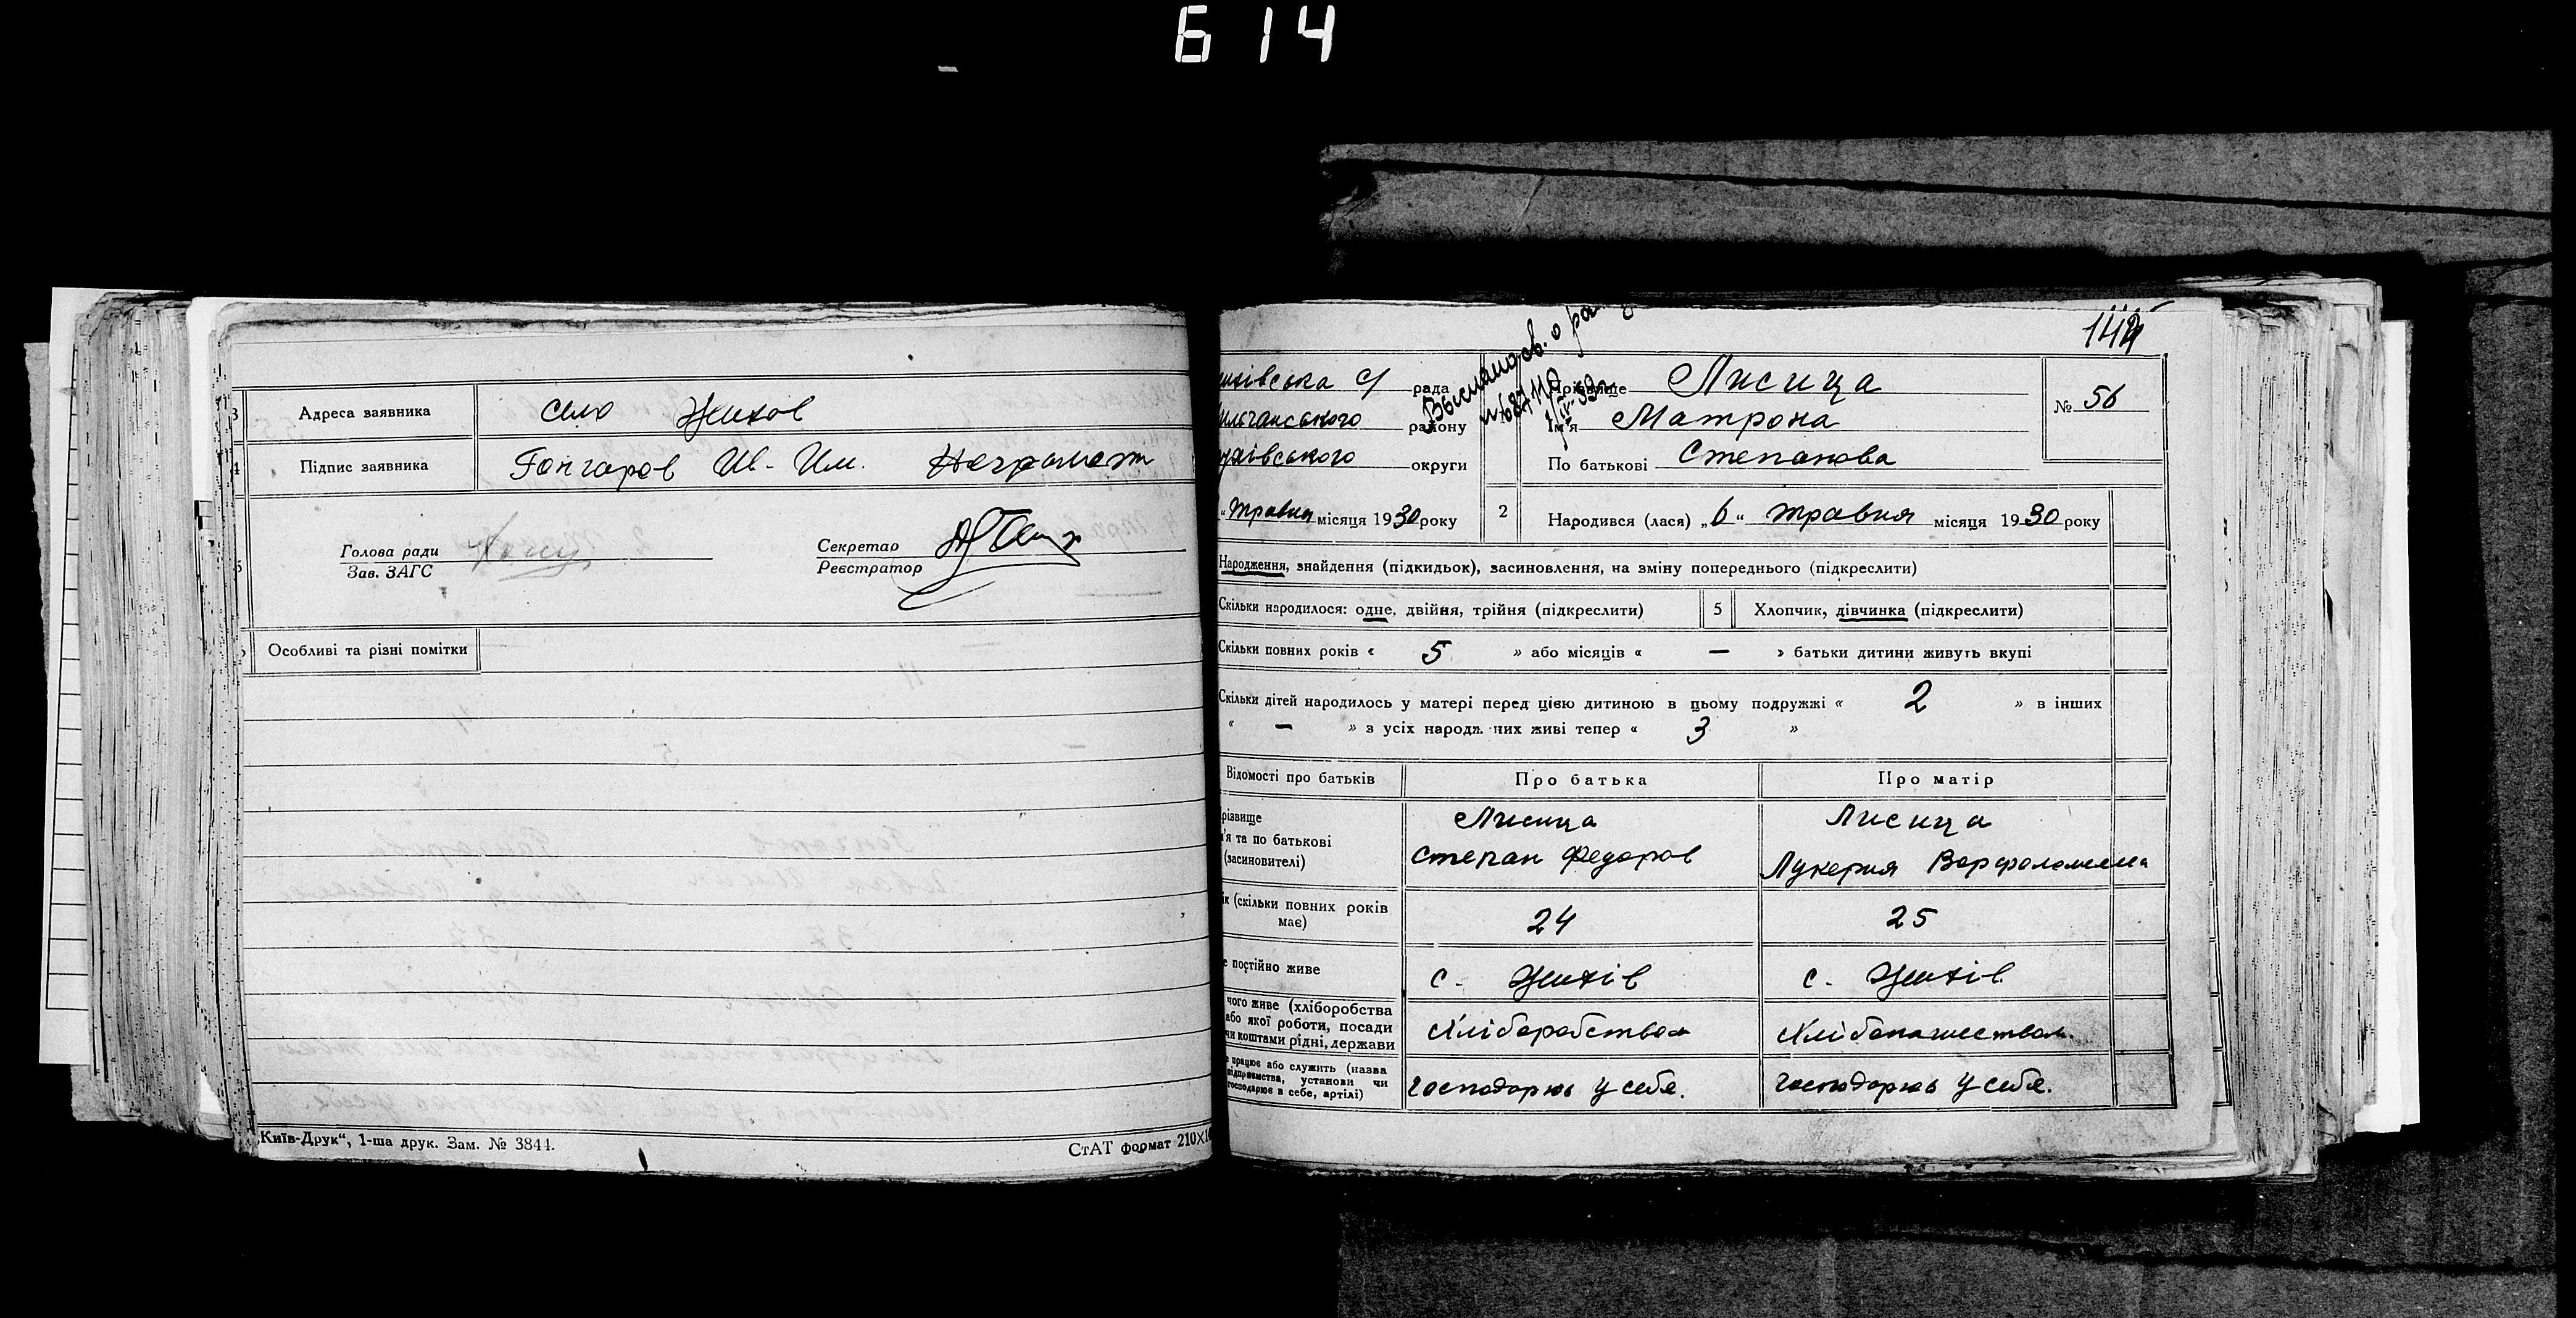 614
Адреса заявника
село Жихов
Підпис заявника
Гончаров Ив. Им. Неграмотн
Голова ради
Зав. ЗАГС
Секретар
Реєстратор
Особливі та різні помітки
„Київ-Друк“, 1-ша друк. Зам. № 3844.
СтАТ формат 210×1
ихівська с/ рада
району
округи
Выслано св. о
№ 56
Прізвище Лисица
Ім'я Матрона
По батькові Степанова
„ травня місяця 1930 року
2 Народився (лася) „6“ травня місяця 1930 року
Народження, знайдення (підкидьок), засиновлення, на зміну попереднього (підкреслити)
Скільки народилося: одне, двійня, трійня (підкреслити) 5 Хлопчик, дівчинка (підкреслити)
Скільки повних років « 5 » або місяців « — » батьки дитини живуть вкупі
Скільки дітей народилось у матері перед цією дитиною в цьому подружжі « 2 » в інших
« — » з усіх народж них живі тепер « 3 »
Відомості про батьків Про батька Про матір
різвище
'я та по батькові
(засиновителі)
Лисица
Степан Федоров
Лисица
Лукерия
ік (скільки повних років
має)
24 25
е постійно живе с. Жихів с. Жихів
чого живе (хліборобства
або якої роботи, посади
чи коштами рідні, держави
Хліборобством Хлібопашеством
е працює або служить (назва
підприємства, установи чи
господарює в себе, артілі)
господорює у себе. господорює у себе.